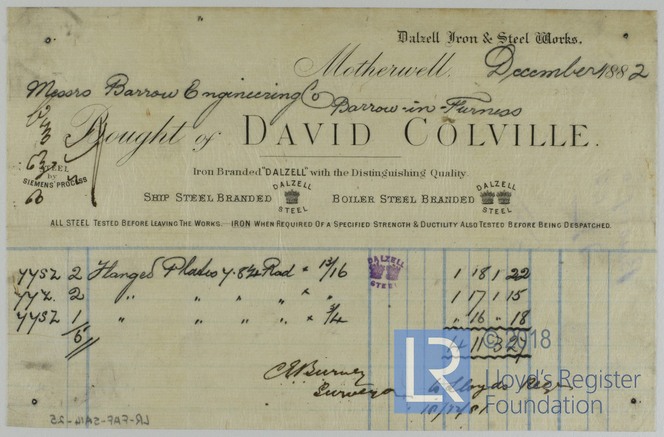 Dalzell Iron & Steel Works.
Motherwell. December 1882
Messrs Barrow Engineering Co
Barrow-in-Furness
Bought of DAVID COLVILLE.
Iron Branded "DALZELL" with the Distinguishing Quality
STEEL
by
SIEMENS' PROCESS
SHIP STEEL BRANDED DALZELL STEEL BOILER STEEL BRANDED DALZELL STEEL
ALL STEEL TESTED BEFORE LEAVING THE WORKS. IRON WHEN REQUIRED OF A SPECIFIED STRENGTH & DUCTILITY ALSO TESTED BEFORE BEING DESPATCHED.
DALZELL
STEEL
2 Flanged Plates 7.8¼ Rad × 13/16 1 18 1 22
2 " " " " " × " 1 17 1 15
1 " " " " " × 3/4 " 16 " 18
5
Surveyor
Lloyds
LR
© 2018
Lloyd's Register
Foundation
LR-FAF-SA14-25